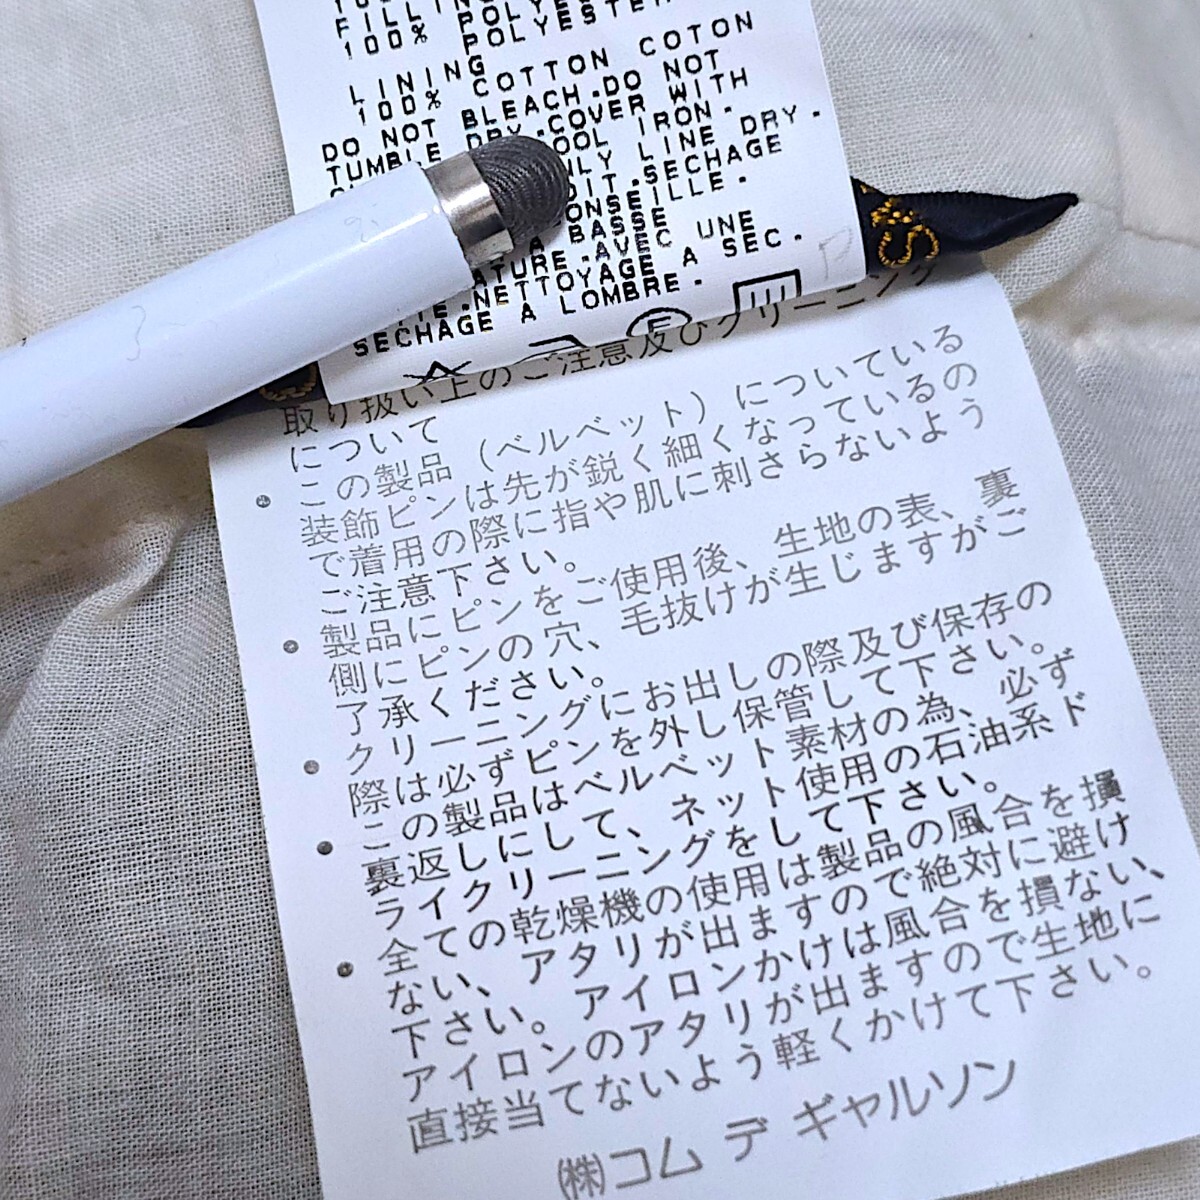 100% POLYESTER
LINING
100% COTTON COTON
DO NOT BLEACH.DO NOT
TUMBLE DRY.COVER WITH
IRON.
LINE DRY.
SECHAGE
UNE
.AVEC
.NETTOYAGE A SEC.
SECHAGE A LOMBRE.
取り扱い上のご注意及びクリーニング
について
この製品（ベルベット）についている
装飾ピンは先が鋭く細くなっているの
で着用の際に指や肌に刺さらないよう
ご注意下さい。
製品にピンをご使用後、生地の表、裏
側にピンの穴、毛抜けが生じますがご
了承ください。
クリーニングにお出しの際及び保存の
際は必ずピンを外し保管して下さい。
この製品はベルベット素材の為、必ず
裏返しにして、ネット使用の石油系ド
ライクリーニングをして下さい。
全ての乾燥機の使用は製品の風合を損
ない、アタリが出ますので絶対に避け
下さい。アイロンかけは風合を損ない、
アイロンのアタリが出ますので生地に
直接当てないよう軽くかけて下さい。
㈱コム デ ギャルソン